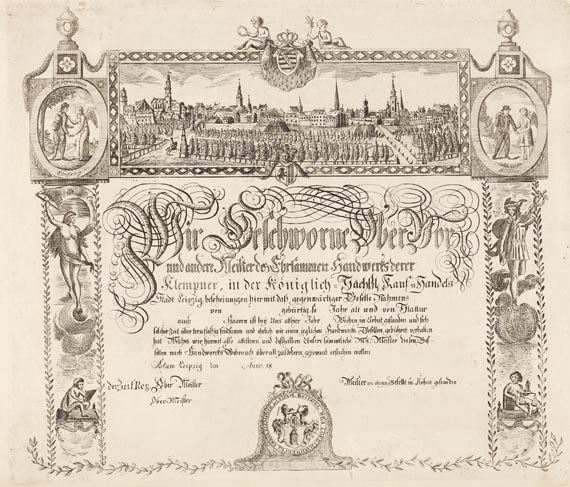 Wir Geschworne Ober Vor
und andere Meister des Ehrsammen Handwercks derer
Klempner, in der Königlich Sächßl. Kauf u Handels
Stadt Leipzig, bescheinigen hiermit daß gegenwärtiger Geselle Nahmens
von gebürtig so Jahr alt und von Statur
auch Haaren ist bey Uns allhier Jahr Wochen in Arbeit gestanden und sich
solche Zeit über treu fleißig friedsam und ehrlich wie einen jeglichen Handwercks Gesellen gebühret verhalten
hat Welches wir hiermit also attestiren und deßhalben Unsere sämmtliche Mit Meister diesen Ge-
sellen nach Handwercks Gebrauch überall zu fördern geziemend ersuchen wollen
Actum Leipzig den Anno. 18
der Zeit Reg. Ober Meister
Ober Meister
Meister wo obiger Geselle in Arbeit gestanden